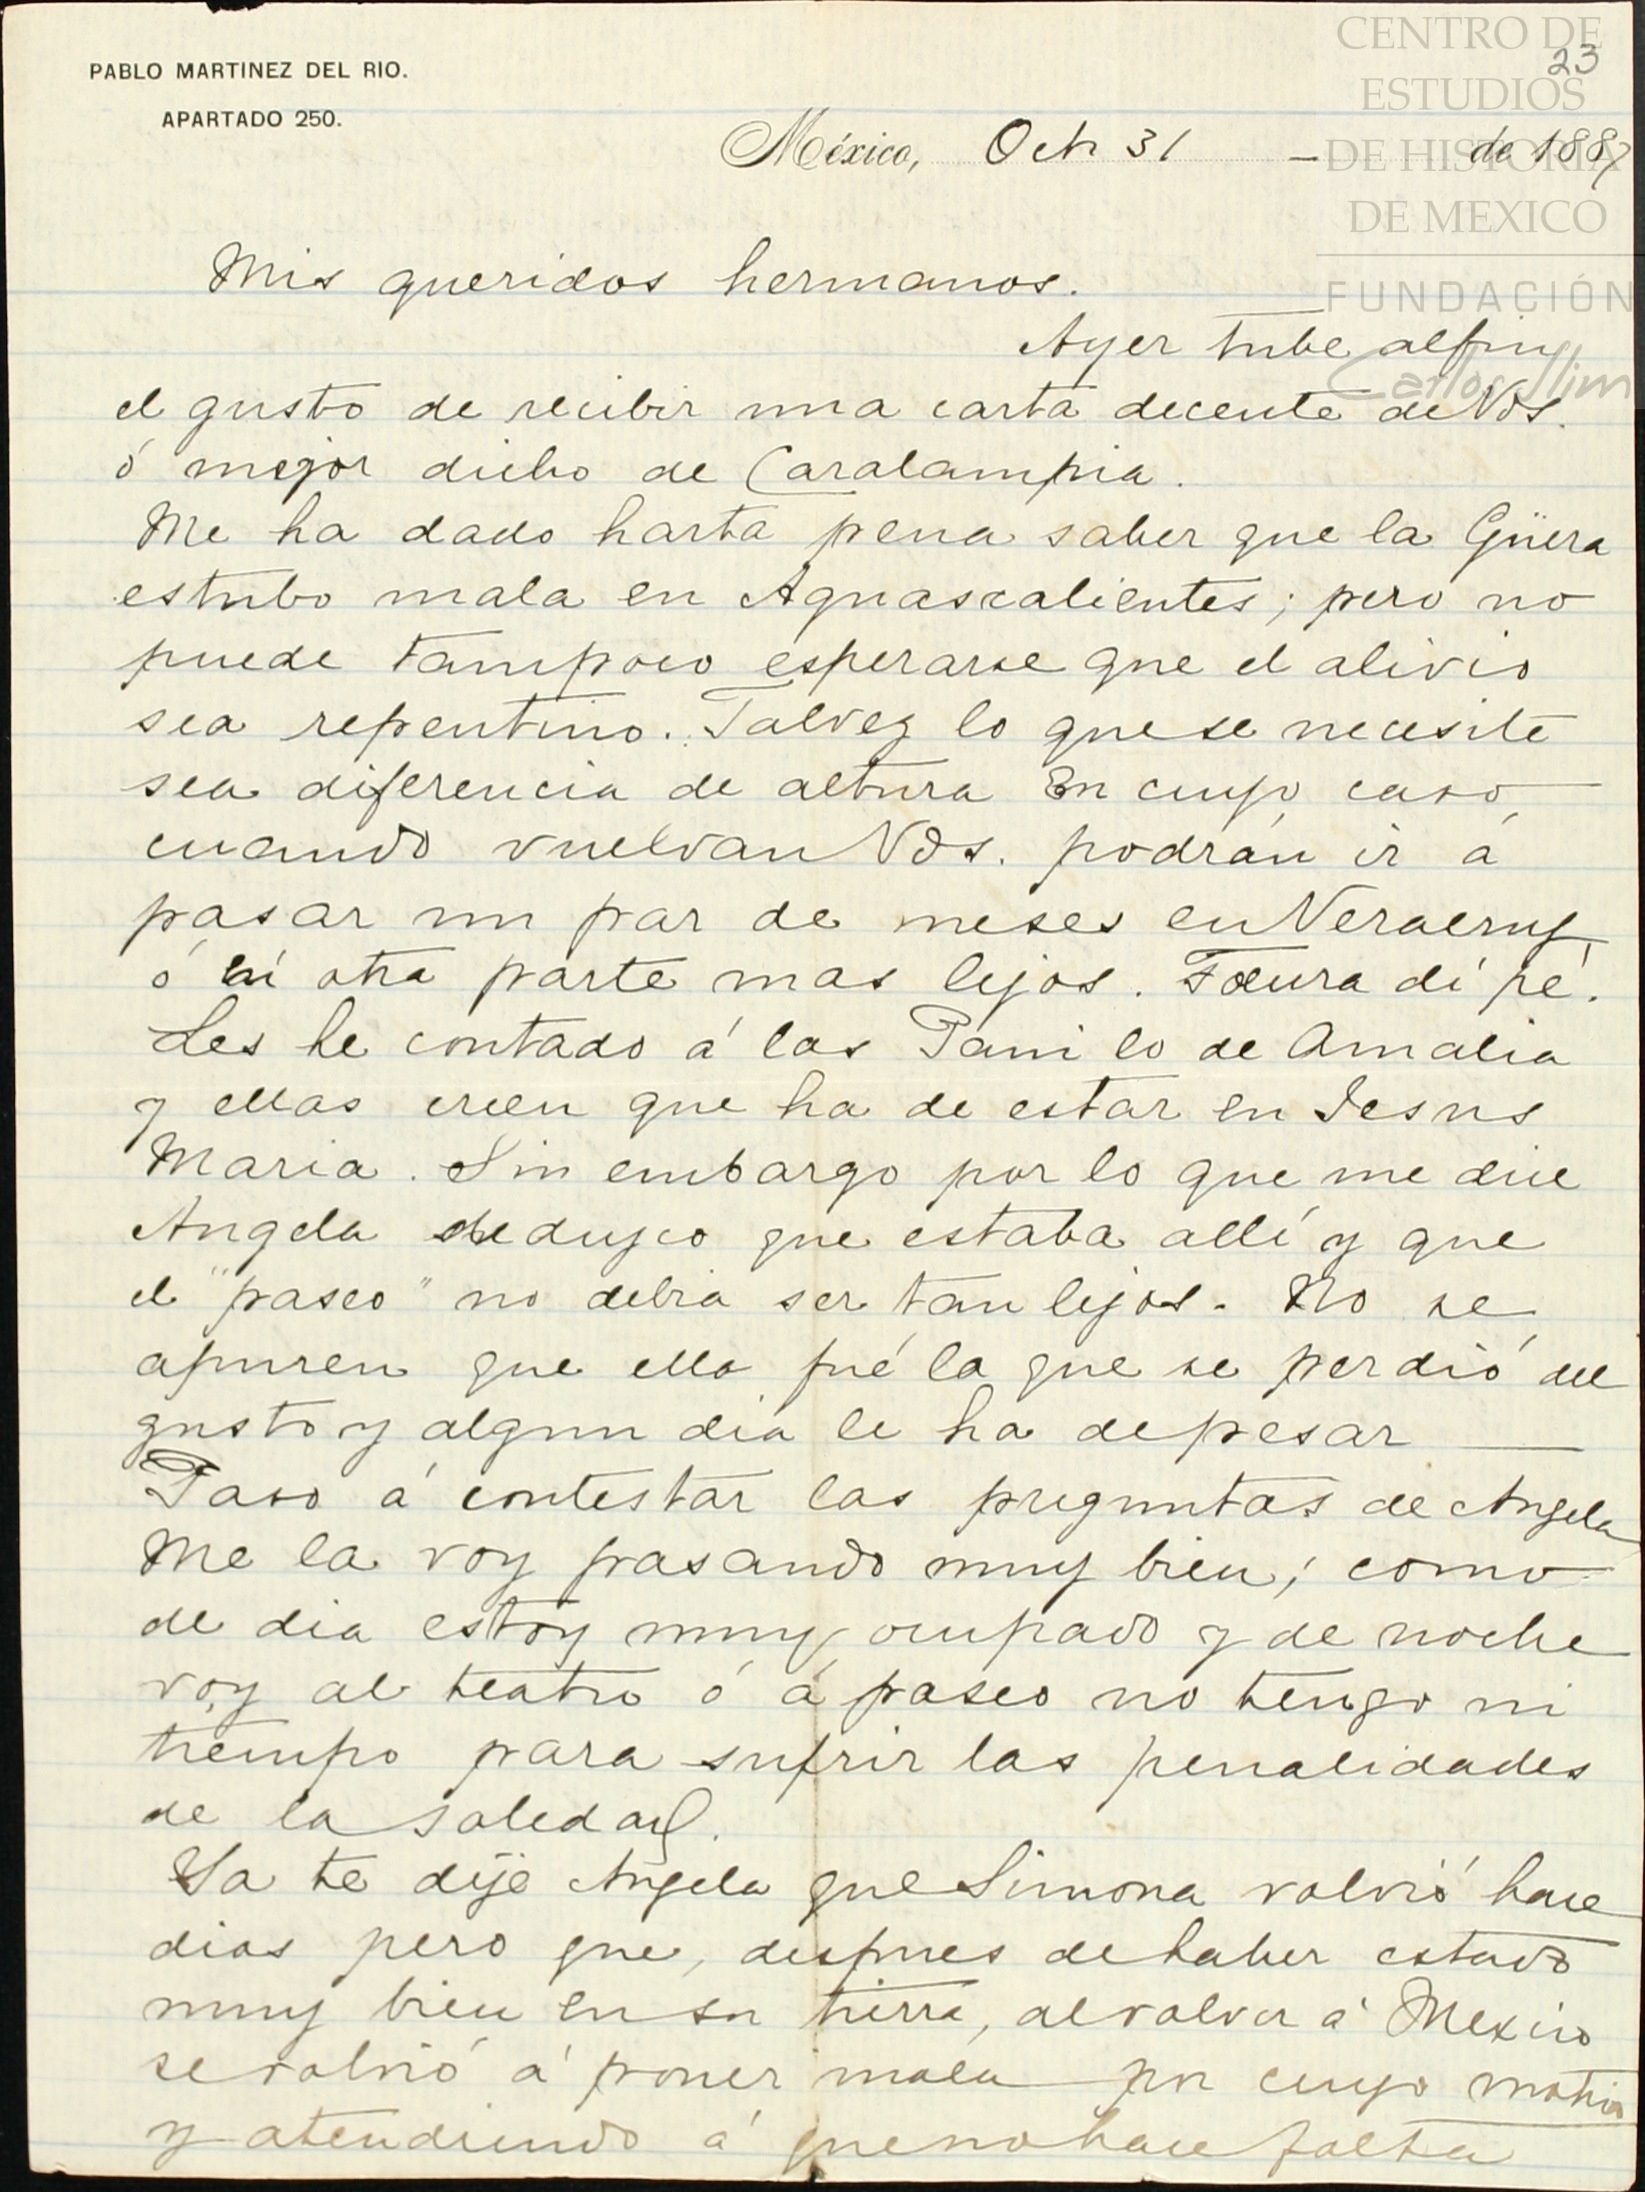 CENTRO DE
ESTUDIOS
DE HISTORIA
DE MEXICO
FUNDACIÓN
Carlos Slim
23
PABLO MARTINEZ DEL RIO.
APARTADO 250.
México, Octr 31 - de 1887
Mis queridos hermanos.
Ayer tube al fin
el gusto de recibir una carta decente de Vds.
ó mejor dicho de Caralampia.
Me ha dado harta pena saber que la Güera
estubo mala en Aguascalientes; pero no
puede tampoco esperarse que el alivio
sea repentino. Talvez lo que se necesite
sea diferencia de altura En cuyo caso,
cuando vuelvan Vds. podrán ir á
pasar un par de meses en Veracruz
ó en otra parte mas lejos.
Les he contado á las Pani lo de Amalia
y ellas creen que ha de estar en Jesus
Maria. Sin embargo por lo que me dice
Angela deduzco que estaba allí y que
el "paseo" no debia ser tan lejos. No se
apuren que ella fué la que se perdió del
gusto y algun dia le ha de pesar —
Paso á contestar las preguntas de Angela
Me la voy pasando muy bien; como
de dia estoy muy ocupado y de noche
voy al teatro ó á paseo no tengo ni
tiempo para sufrir las penalidades
de la soledad.
Ya te dije Angela que Simona volvió hace
dias pero que, despues de haber estado
muy bien en su tierra, al volver á Mexico
se volvió á poner mala por cuyo motivo
y atendiendo á que no hace falta